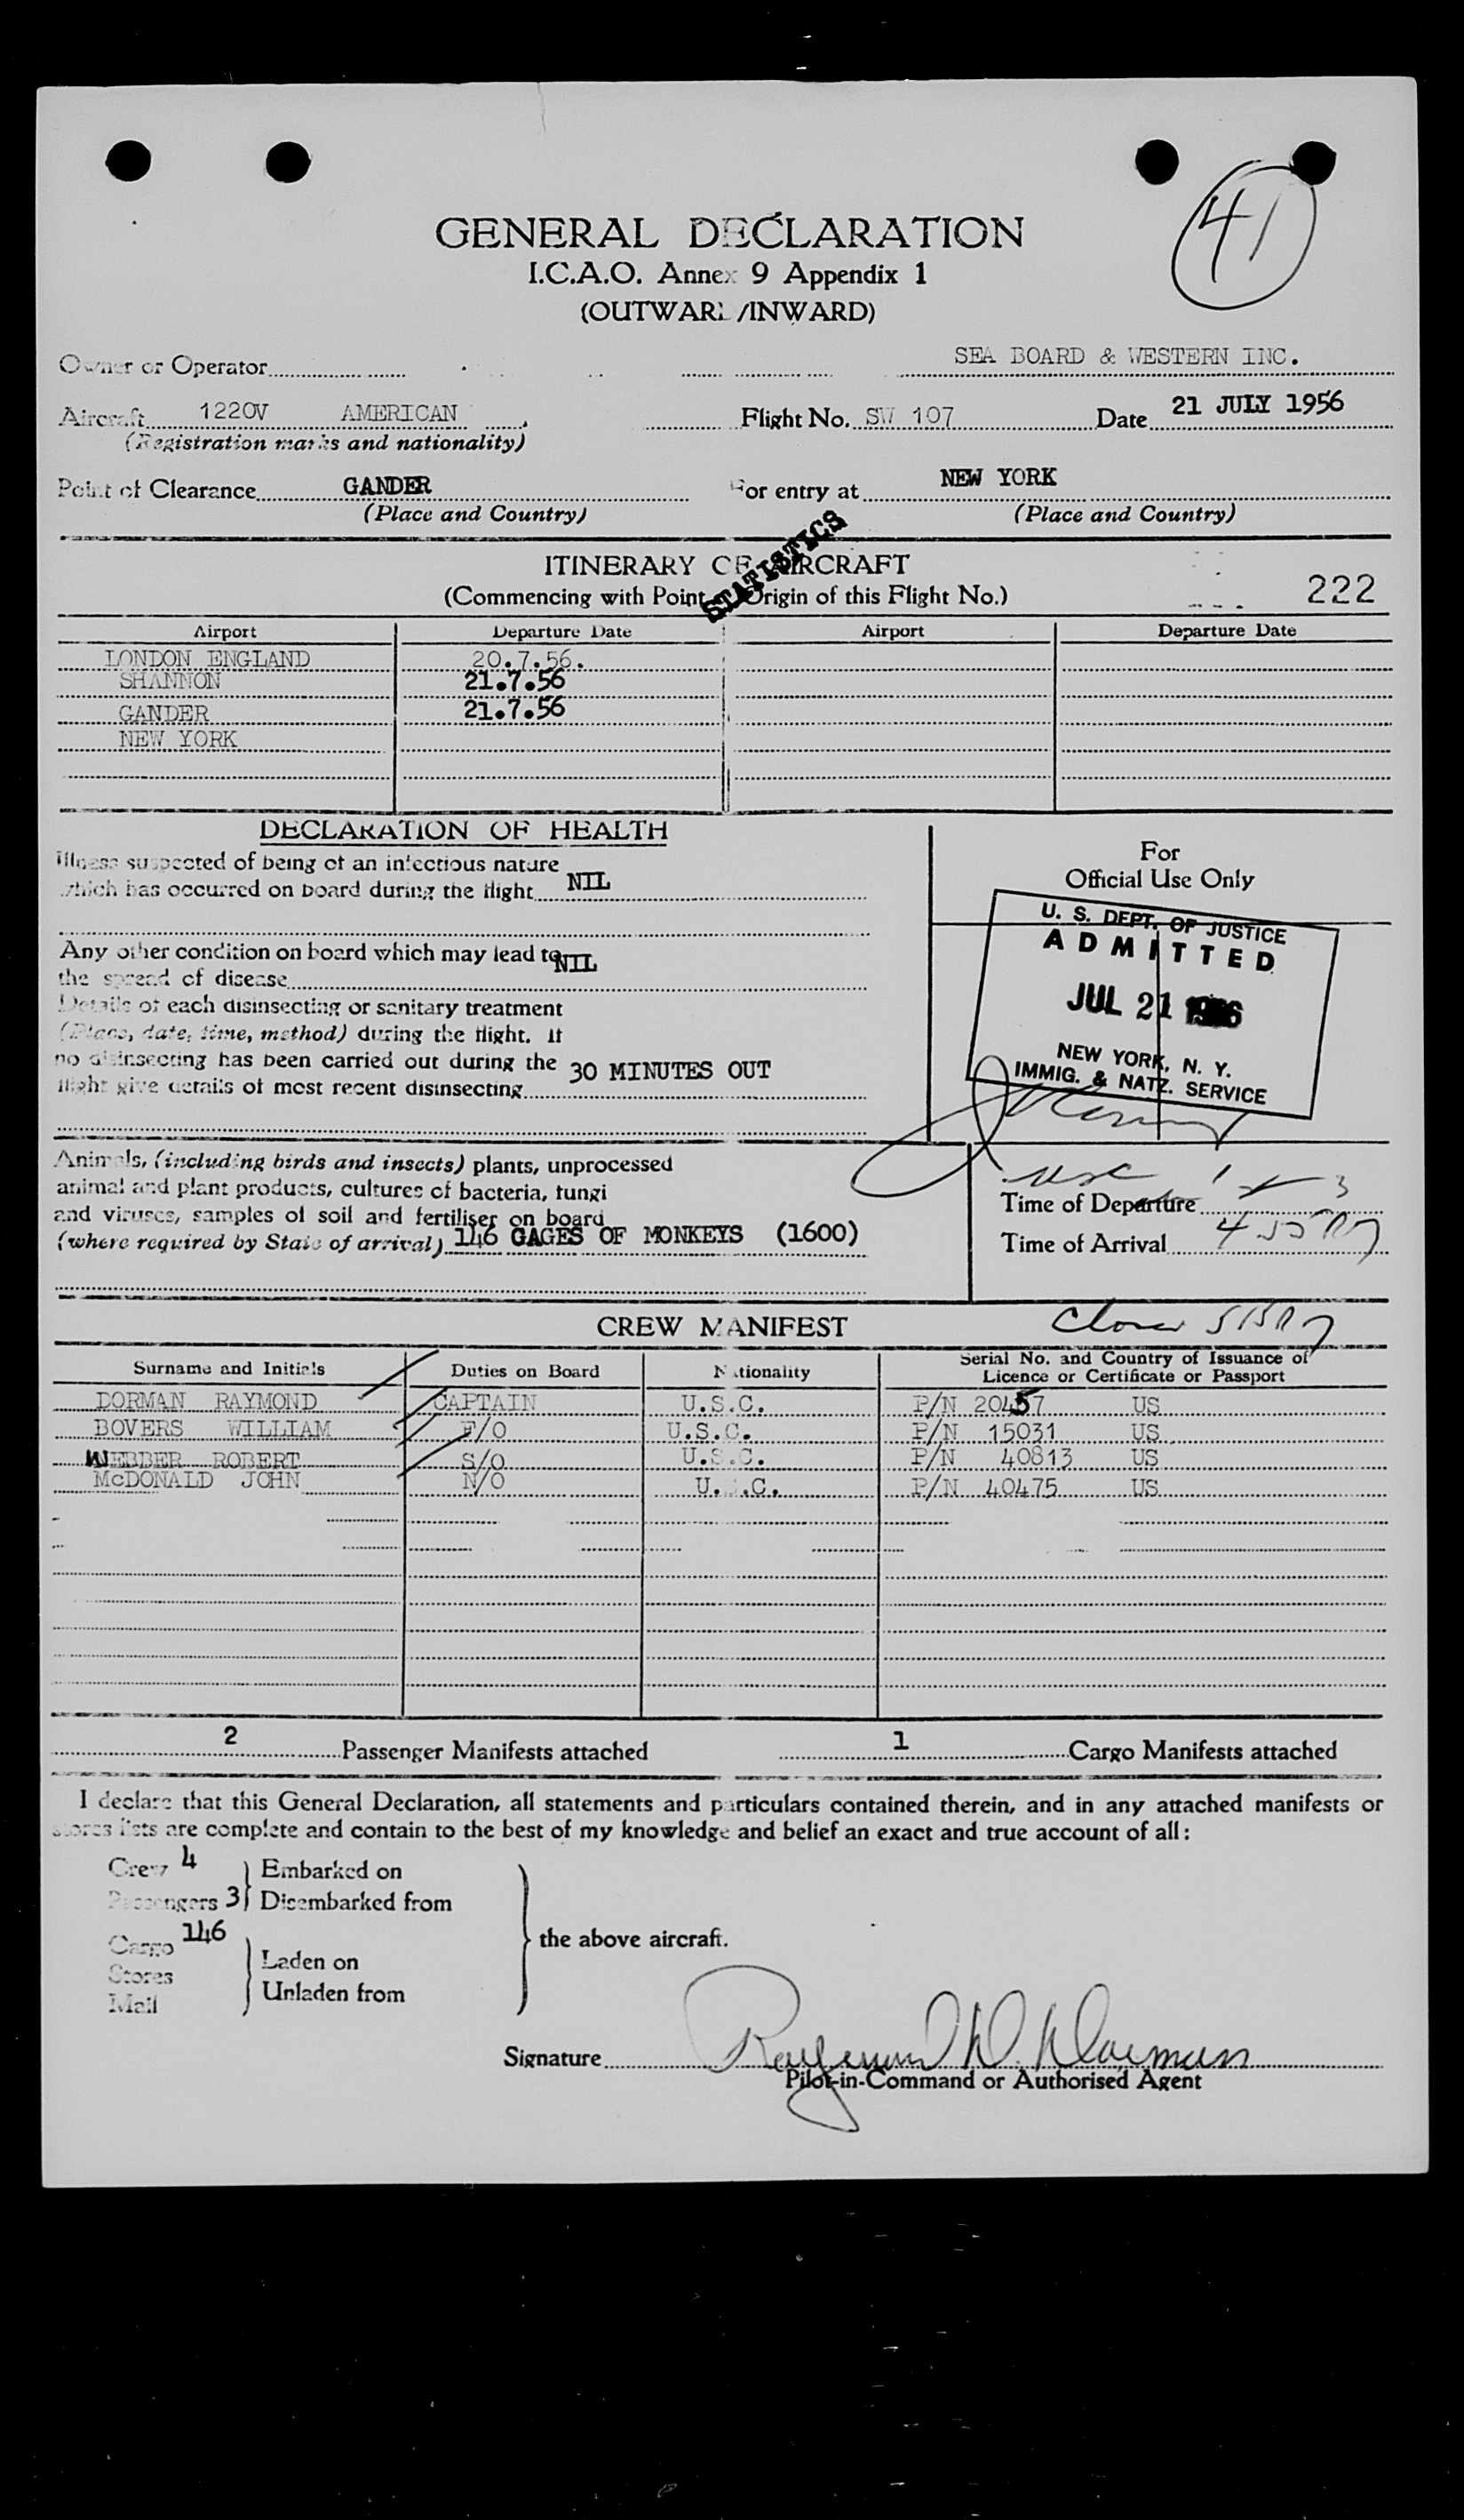 41
GENERAL DECLARATION
I.C.A.O. Annex 9 Appendix 1
(OUTWARD/INWARD)
Owner or Operator SEA BOARD & WESTERN INC.
Aircraft 1220V AMERICAN Flight No. SW 107 Date 21 JULY 1956
(Registration marks and nationality)
Point of Clearance GANDER For entry at NEW YORK
(Place and Country) (Place and Country)
STATISTICS
ITINERARY OF AIRCRAFT
(Commencing with Point of Origin of this Flight No.) 222
Airport Departure Date Airport Departure Date
LONDON ENGLAND 20.7.56.
SHANNON 21.7.56
GANDER 21.7.56
NEW YORK
DECLARATION OF HEALTH
Illness suspected of being of an infectious nature
which has occurred on board during the flight NIL
Any other condition on board which may lead to NIL
the spread of disease
Details of each disinsecting or sanitary treatment
(Place, date, time, method) during the flight. If
no disinsecting has been carried out during the 30 MINUTES OUT
flight give details of most recent disinsecting
For
Official Use Only
U. S. DEPT. OF JUSTICE
ADMITTED
JUL 21 1956
NEW YORK, N. Y.
IMMIG. & NATZ. SERVICE
Animals, (including birds and insects) plants, unprocessed
animal and plant products, cultures of bacteria, fungi
and viruses, samples of soil and fertiliser on board
(where required by State of arrival) 146 GAGES OF MONKEYS (1600)
Time of Departure
Time of Arrival
CREW MANIFEST
Surname and Initials Duties on Board Nationality Serial No. and Country of Issuance of
Licence or Certificate or Passport
DORMAN RAYMOND CAPTAIN U.S.C. P/N 20457 US
BOVERS WILLIAM F/O U.S.C. P/N 15031 US
WEBBER ROBERT S/O U.S.C. P/N 40813 US
McDONALD JOHN N/O U.S.C. P/N 40475 US
2 Passenger Manifests attached 1 Cargo Manifests attached
I declare that this General Declaration, all statements and particulars contained therein, and in any attached manifests or
stores lists are complete and contain to the best of my knowledge and belief an exact and true account of all:
Crew 4 Embarked on
Passengers 3 Disembarked from
Cargo 146
the above aircraft.
Stores Laden on
Mail Unladen from
Signature Raymond W. Dorman
Pilot-in-Command or Authorised Agent